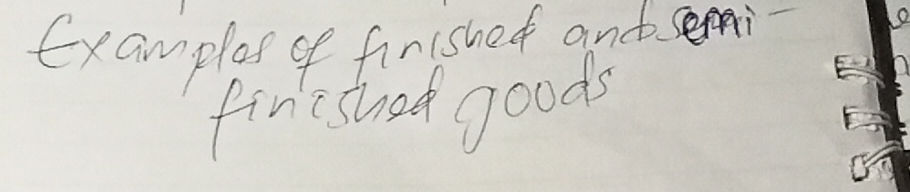 Examples of finished and semi-
finished goods